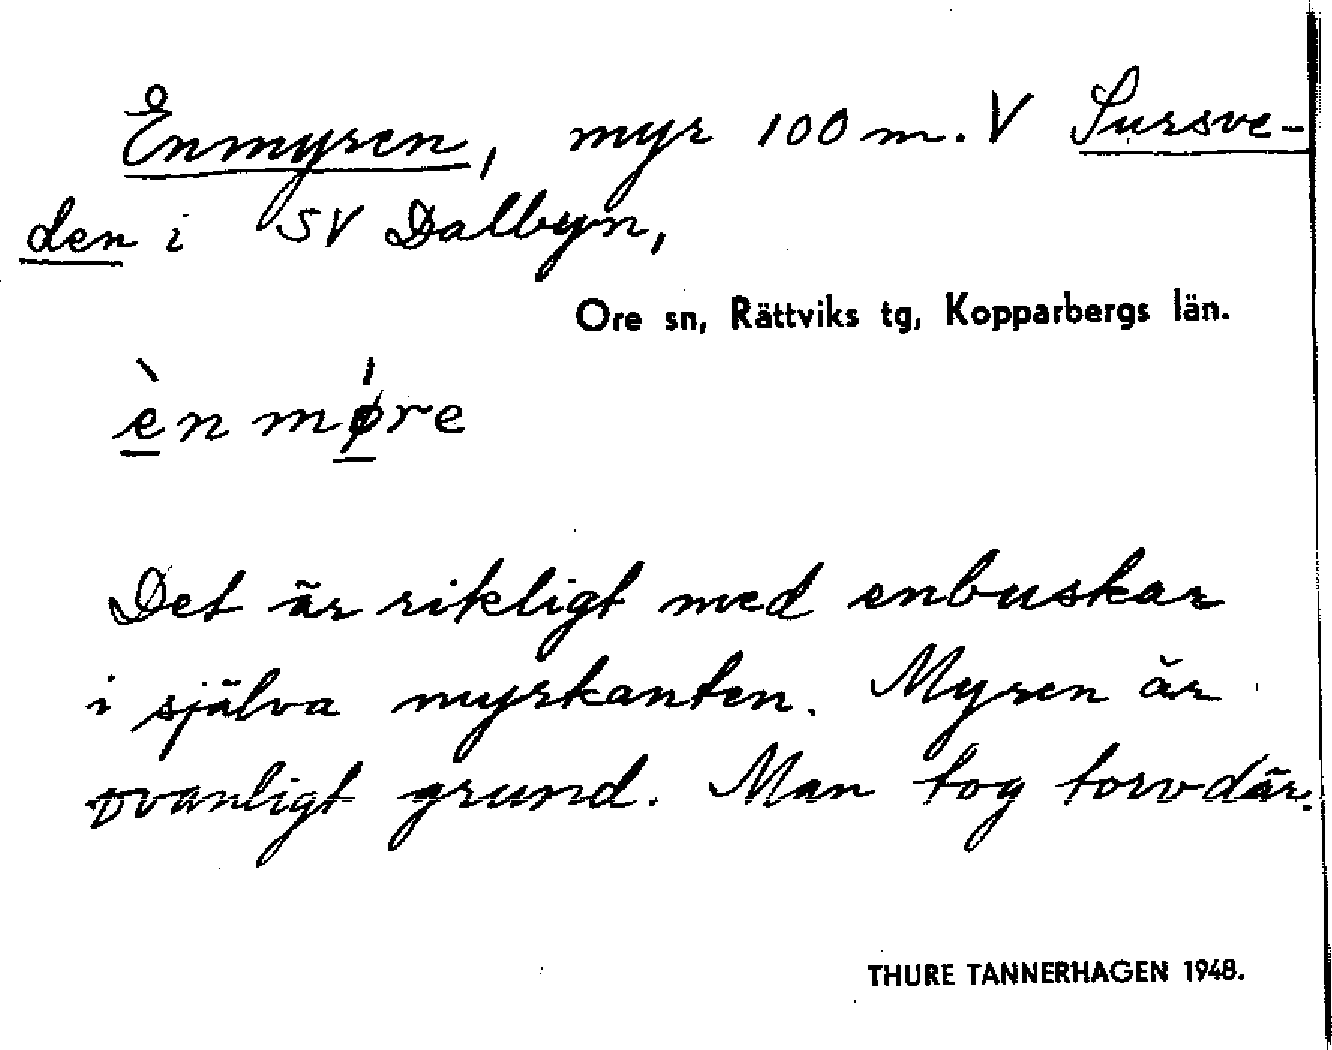 E̊nmyren, myr 100 m. V Sursve-
den i SV Dalbyn,
Ore sn, Rättviks tg, Kopparbergs län.
è̲n mǿ̲re
Det är rikligt med enbuskar
i själva myrkanten. Myren är
ovanligt grund. Man tog torv där.
THURE TANNERHAGEN 1948.